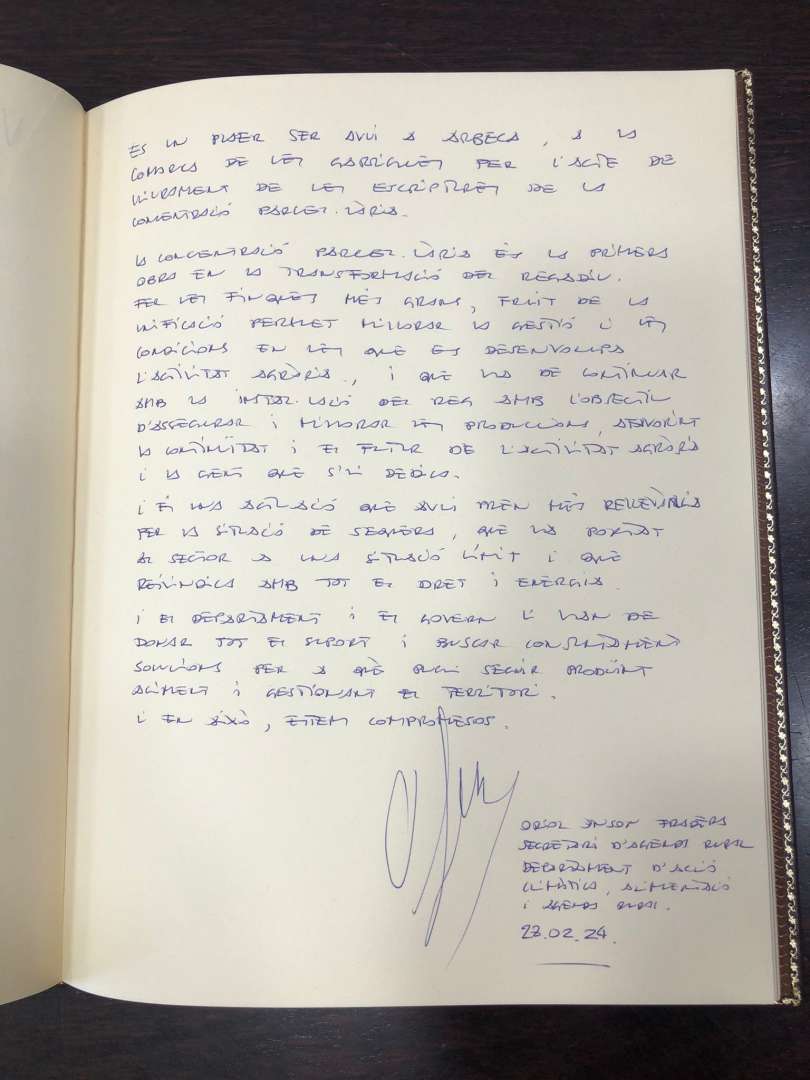 ÉS UN PLAER SER AVUI A ARBECA, A LA
COMARCA DE LES GARRIGUES PER L'ACTE DE
LLIURAMENT DE LES ESCRIPTURES DE LA
CONCENTRACIÓ PARCEL·LÀRIA.
LA CONCENTRACIÓ PARCEL·LÀRIA ÉS LA PRIMERA
OBRA EN LA TRANSFORMACIÓ DEL REGADIU.
FER LES FINQUES MÉS GRANS, FRUIT DE LA
UNIFICACIÓ PERMET MILLORAR LA GESTIÓ I LES
CONDICIONS EN LES QUE ES DESENVOLUPA
L'ACTIVITAT AGRÀRIA, I QUE HA DE CONTINUAR
AMB LA INSTAL·LACIÓ DEL REG AMB L'OBJECTIU
D'ASSEGURAR I MILLORAR LES PRODUCCIONS, AFAVORINT
LA CONTINUÏTAT I EL FUTUR DE L'ACTIVITAT AGRÀRIA
I LA GENT QUE S'HI DEDICA.
I ÉS UNA ACTUACIÓ QUE AVUI PREN MÉS RELLEVÀNCIA
PER LA SITUACIÓ DE SEQUERA, QUE HA PORTAT
AL SECTOR A UNA SITUACIÓ LÍMIT I QUE
REIVINDICA AMB TOT EL DRET I ENERGIA.
I EL DEPARTAMENT I EL GOVERN LI HAN DE
DONAR TOT EL SUPORT I BUSCAR CONJUNTAMENT
SOLUCIONS PER A QUÈ PUGUI SEGUIR PRODUINT
ALIMENT I GESTIONANT EL TERRITORI.
I EN AIXÒ, ESTEM COMPROMESOS.
ORIOL ANSON FRADERA
SECRETARI D'AGENDA RURAL
DEPARTAMENT D'ACCIÓ
CLIMÀTICA, ALIMENTACIÓ
I AGENDA RURAL.
23.02.24.